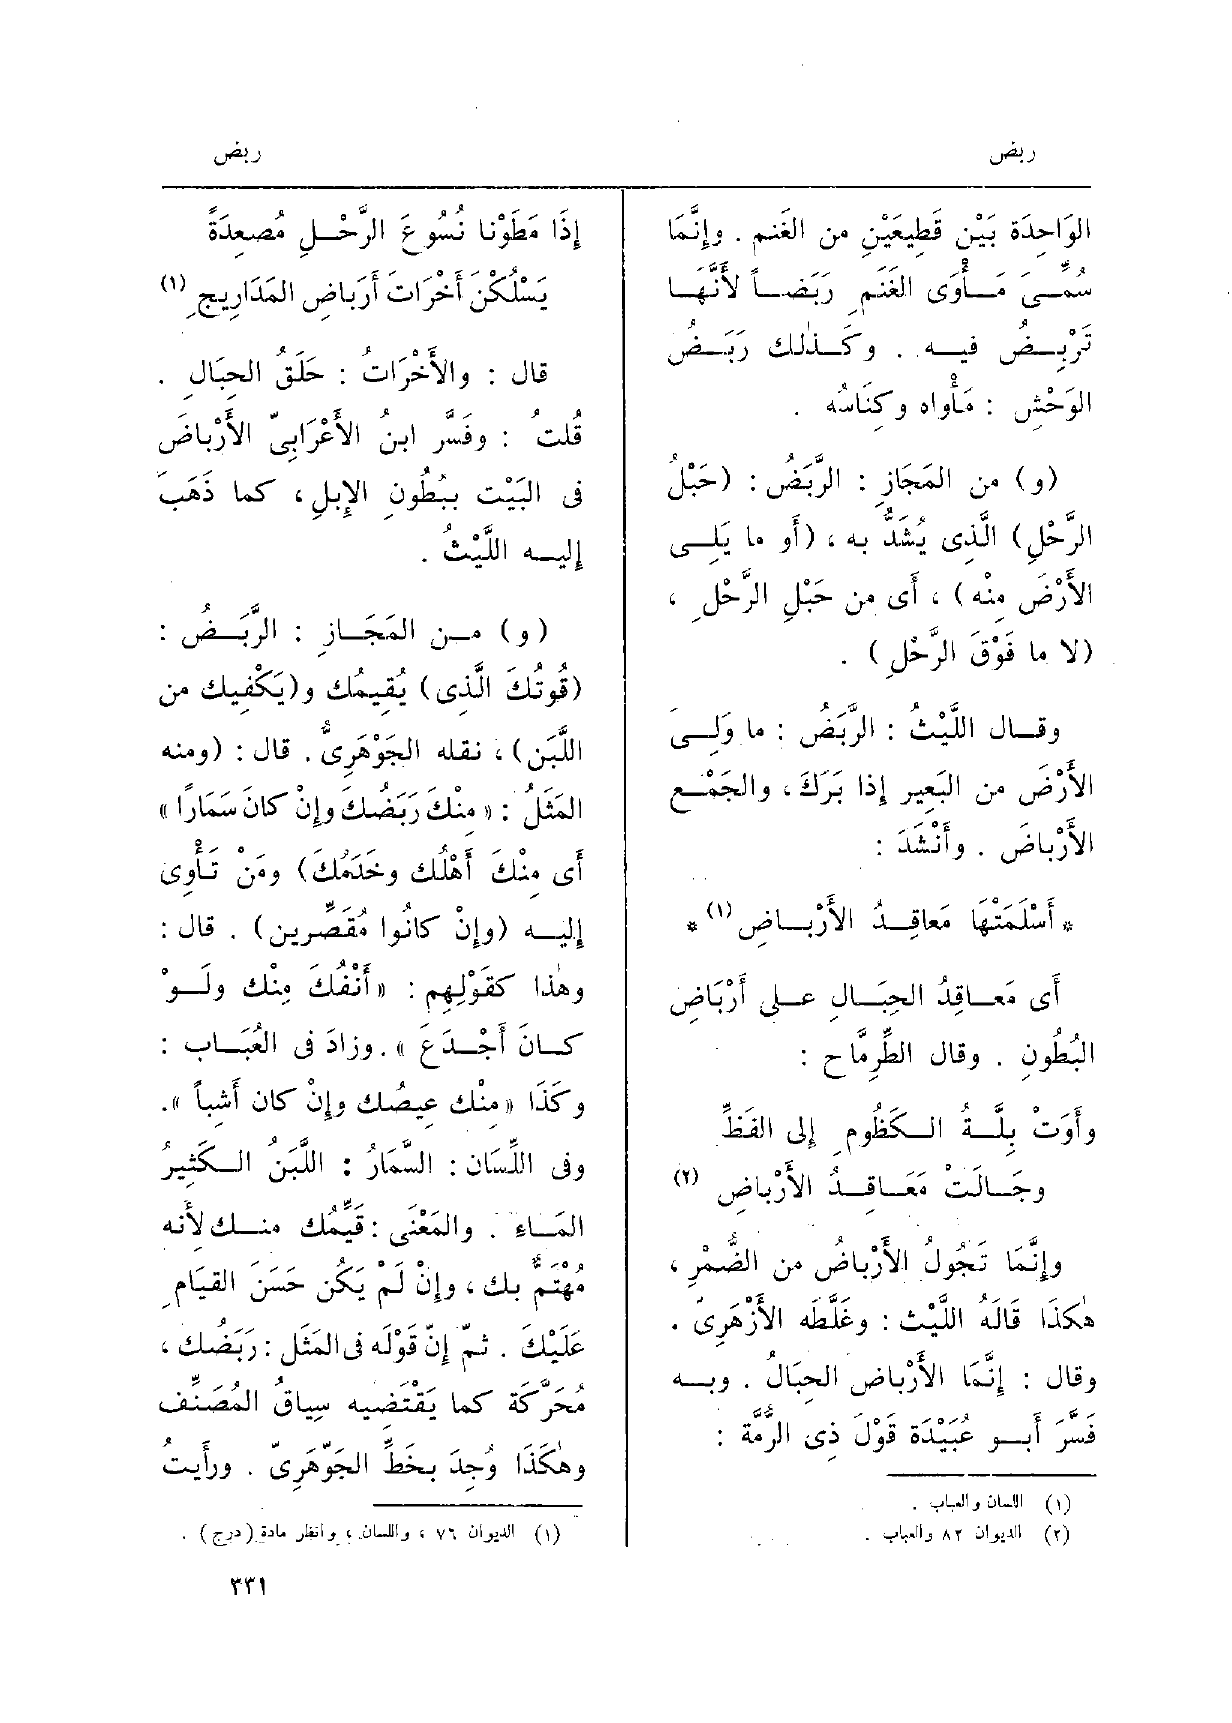 ربض
ربض
الوَاحِدَة بَيْن قَطِيعَيْنِ من الغَنم . وإنَّمَا
سُمِّـىَ مَـأْوَى الغَنَمِ رَبَضـاً لأَنَّهَـا
تَرْبِـضُ فيـه . وكَـذٰلك رَبَـضُ
الوَحْشِ : مَأْواه وكِنَاسُه .
(و) من المَجَازِ : الرَّبَضُ : (حَبْلُ
الرَّحْلِ) الَّذِى يُشَدُّ به ، (أَو ما يَلِـى
الأَرْضَ مِنْه) ، أَى من حَبْلِ الرَّحْلِ ،
(لا ما فَوْقَ الرَّحْلِ) .
وقـال اللَّيْثُ : الرَّبَضُ : ما وَلِـىَ
الأَرْضَ من البَعِير إذا بَرَكَ ، والجَمْـع
الأَرْبَاضَ . وأَنْشَدَ :
* أَسْلَمَتْهَا مَعاقِـدُ الأَرْبـاضِ (١) *
أَى مَعَـاقِدُ الحِبَـالِ عـلى أَرْبَاضِ
البُطُونِ . وقال الطِّرِمَّاح :
وأَوَتْ بِلَّـةُ الـكَظُومِ إِلى الفَظِّ
وجَـالَتْ مَعَـاقِـدُ الأَرْباضِ (٢)
وإِنَّمَا تَجُولُ الأَرْبَاضُ من الضُّمْرِ ،
هٰكَذَا قَالَهُ اللَّيْث : وغَلَّطَه الأَزْهَرِىّ .
وقال : إِنَّمَا الأَرْبَاضُ الحِبَالُ . وبـه
فَسَّرَ أَبـو عُبَيْدَة قَوْلَ ذِى الرُّمَّة :
(١) اللسان والعباب .
(٢) الديوان ٨٢ والعباب .
إِذَا مَطَوْنا نُسُوعَ الرَّحْـلِ مُصعِدَةً
يَسْلُكْنَ أَخْرَاتَ أَرْبَاضِ المَدَارِيجِ (١)
قال : والأَخْرَاتُ : حَلَقُ الحِبَالِ .
قُلتُ : وفَسَّرَ ابنُ الأَعْرَابِىّ الأَرْبَاضَ
فى البَيْت بِبُطُونِ الإِبِلِ ، كما ذَهَبَ
إِليـه اللَّيْثُ .
(و) مـن المَجَـازِ : الرَّبَـضُ :
(قُوتُكَ الَّذِى) يُقِيمُك و(يَكْفِيك من
اللَّبَن) ، نقله الجَوْهَرِىُّ . قال : (ومنه
المَثَلُ : « مِنْكَ رَبَضُكَ وإِنْ كانَ سَمَارًا »
أَى مِنْكَ أَهْلُك وخَدَمُكَ) ومَنْ تَأْوِى
إِليـه (وإِنْ كانُوا مُقَصِّرِين) . قال :
وهٰذا كقَوْلِهِم : « أَنْفُكَ مِنْك ولَـوْ
كـانَ أَجْـدَعَ » . وزادَ فى العُبَـاب :
وكَذَا « مِنْك عِيصُك وإِنْ كان أَشِباً » .
وفى اللِّسَان : السَّمَارُ : اللَّبَنُ الـكَثِيرُ
المَـاءِ . والمَعْنَى : قَيِّمُك منـك لأَنه
مُهْتَمٌّ بك ، وإِنْ لَمْ يَكُن حَسَنَ القيَامِ
عَلَيْكَ . ثمّ إِنّ قَوْلَه فى المَثَل : رَبَضُك ،
مُحَرَّكَة كما يَقْتَضِيه سِياقُ المُصَنِّف
وهٰكَذَا وُجِدَ بخَطِّ الجَوْهَرِىّ . ورأَيتُ
(١) الديوان ٧٦ ، واللسان ، وانظر مادة (درج) .
٣٣١